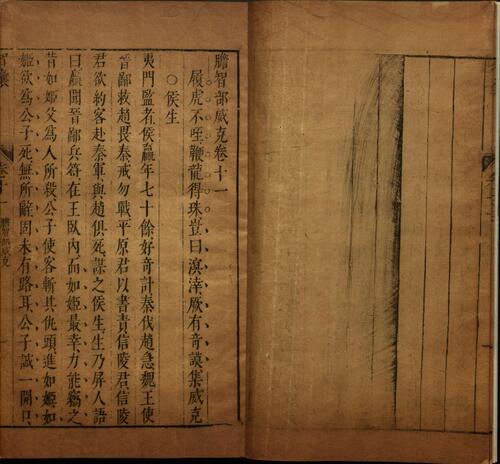 膽智部威克卷十一
履虎不咥鞭龍得珠豈曰溟涬厥有奇謨集威克
○侯生
夷門監者侯嬴年七十餘好奇計秦伐趙急魏王使
晉鄙救趙畏秦戒勿戰平原君以書責信陵君信陵
君欲約客赴秦軍與趙俱死謀之侯生生乃屏人語
曰嬴聞晉鄙兵符在王臥內而如姬最幸力能竊之
昔如姬父為人所殺公子使客斬其仇頭進如姬如
姬欲為公子死無所辭固未有路耳公子誠一開口
智囊
卷十一
膽智部威克
一